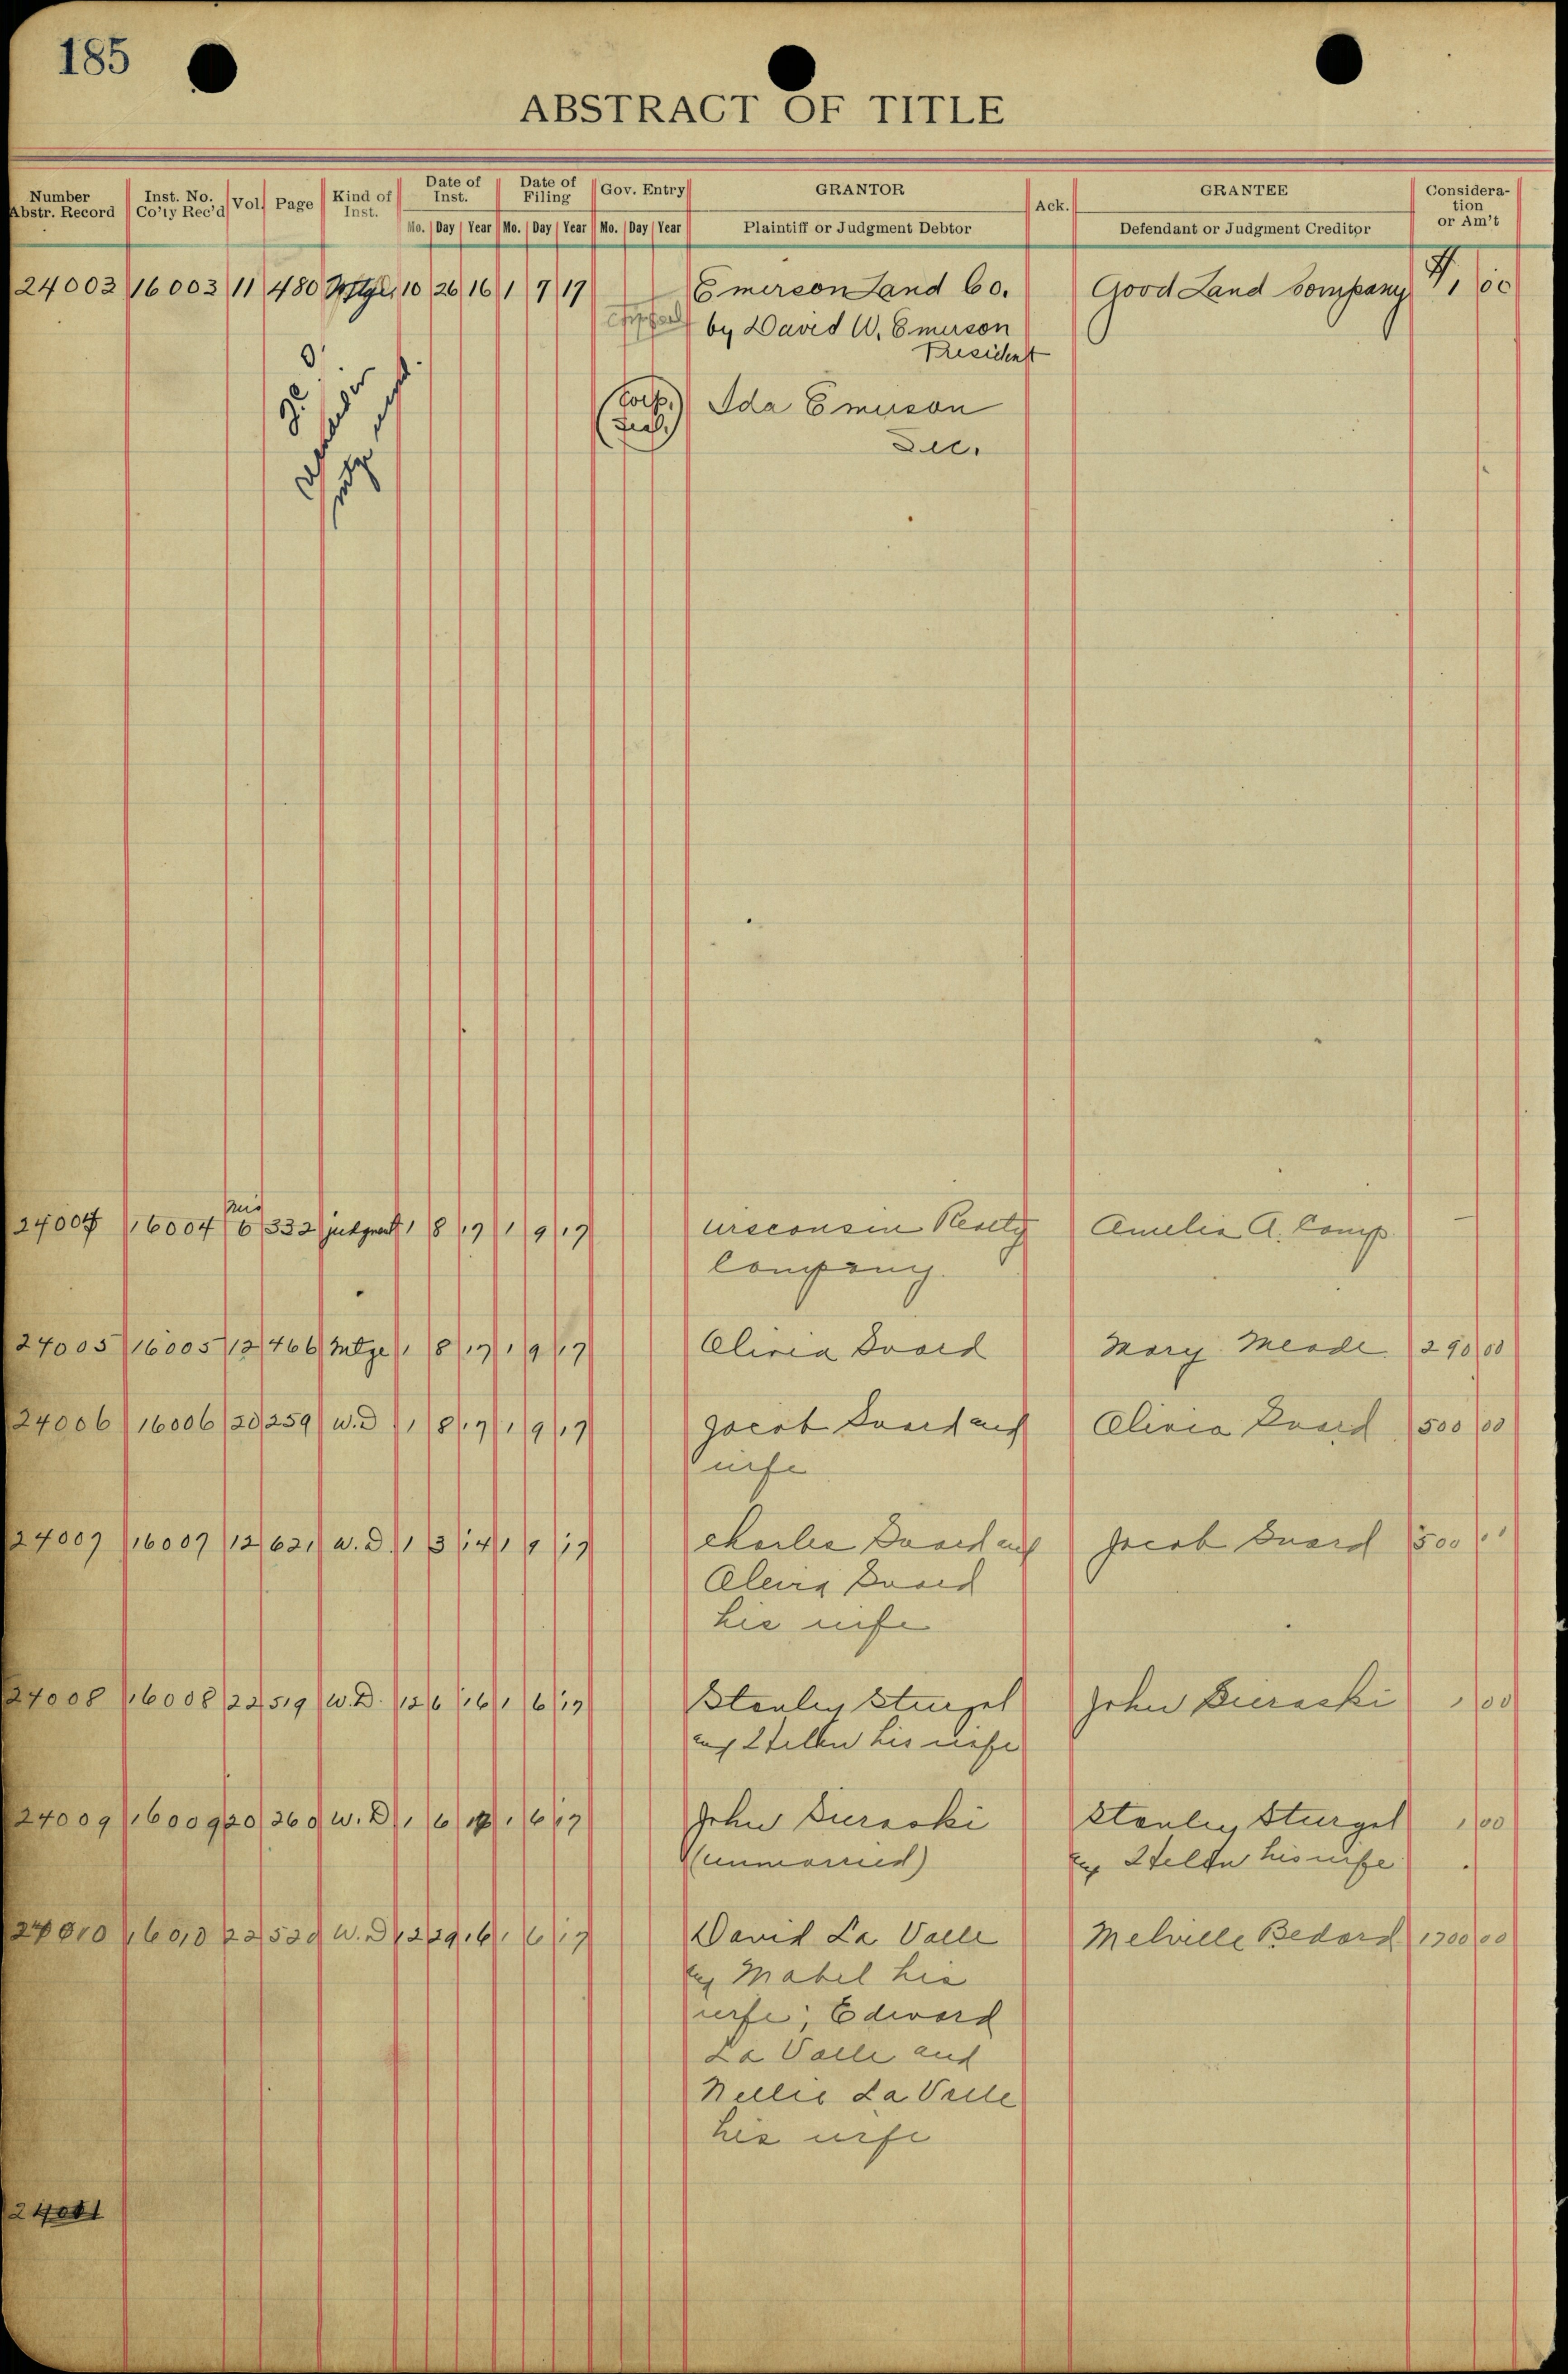 185
ABSTRACT OF TITLE
Number Abstr. Record | Inst. No. Co'ty Rec'd | Vol. | Page | Kind of Inst. | Date of Inst. | Date of Filing | Gov. Entry | GRANTOR | Ack. | GRANTEE | Consideration or Am't
Mo. Day Year | Mo. Day Year | Mo. Day Year | Plaintiff or Judgment Debtor | Defendant or Judgment Creditor
24003 16003 11 480 10 26 16 1 9 17 Emerson Land Co. Good Land Company 1, 00
by David W. Emerson
President
(Corp. Ida Emerson
Seal.) Sec.
Mis
24004 16004 6 332 judgment 1 8 17 1 9 17 Wisconsin Realty Amelia A. Comp. —
Company.
24005 16005 12 466 Mtge 1 8 17 1 9 17 Olivia Mary Meade 290 00
24006 16006 20 259 W.D 1 8 17 1 9 17 Jacob and Olivia 500 00
wife
24007 16007 12 621 W.D. 1 3 14 1 9 17 Charles and Jacob 500
his wife
24008 16008 22 519 W.D. 12 6 16 1 6 17 Stanley Sturgel John 1 00
and his wife
24009 16009 20 260 W.D 1 6 17 1 6 17 John Stanley Sturgel 1 00
(unmarried) and his wife
24010 16010 22 520 W.D 12 29 16 1 6 17 David La Valle Melville Bedard 1700 00
and Mabel his
wife; Edward
La Valle and
Nellie La Valle
his wife
24011